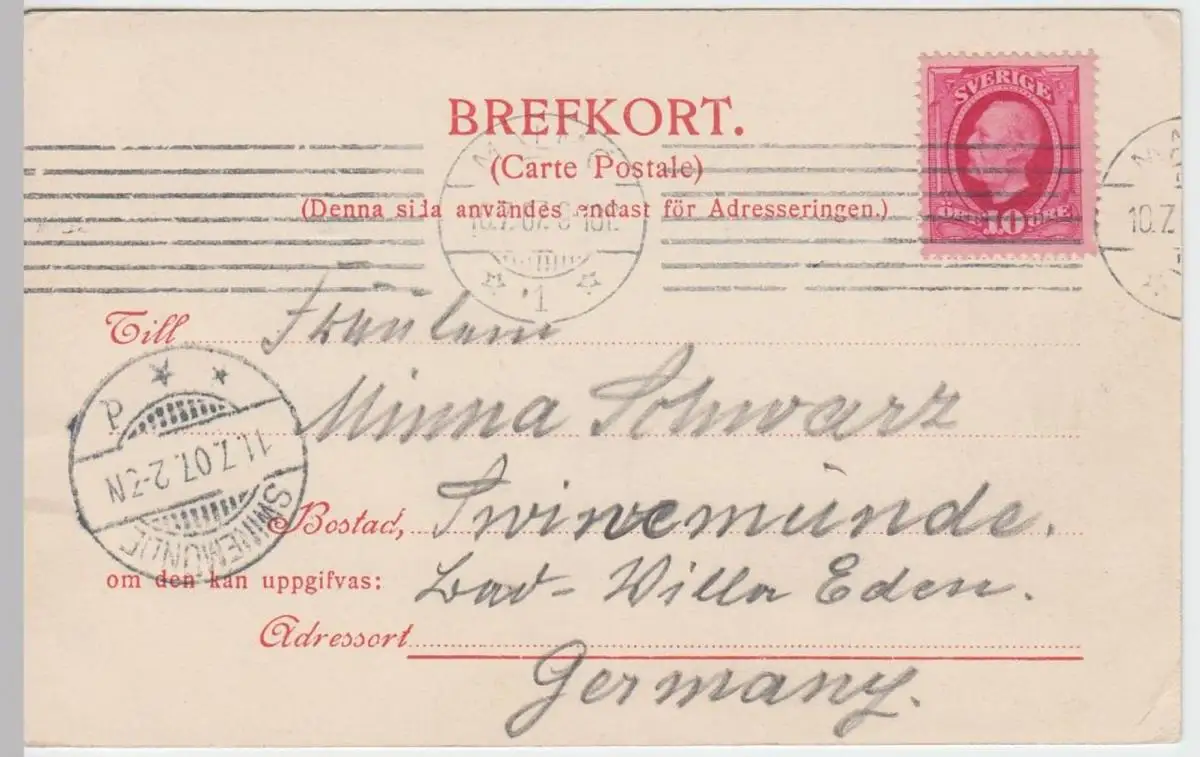 BREFKORT.
(Carte Postale)
(Denna sida användes endast för Adresseringen.)
SVERIGE
ÖRE 10 ÖRE
10.7.07
1
10.7
Till Fräulein
Minna Schwarz
Bostad, Swinemünde.
om den kan uppgifvas: Bad-Willa Eden.
Adressort
Germany.
P
11.7.07.2-3N
SWINEMÜNDE